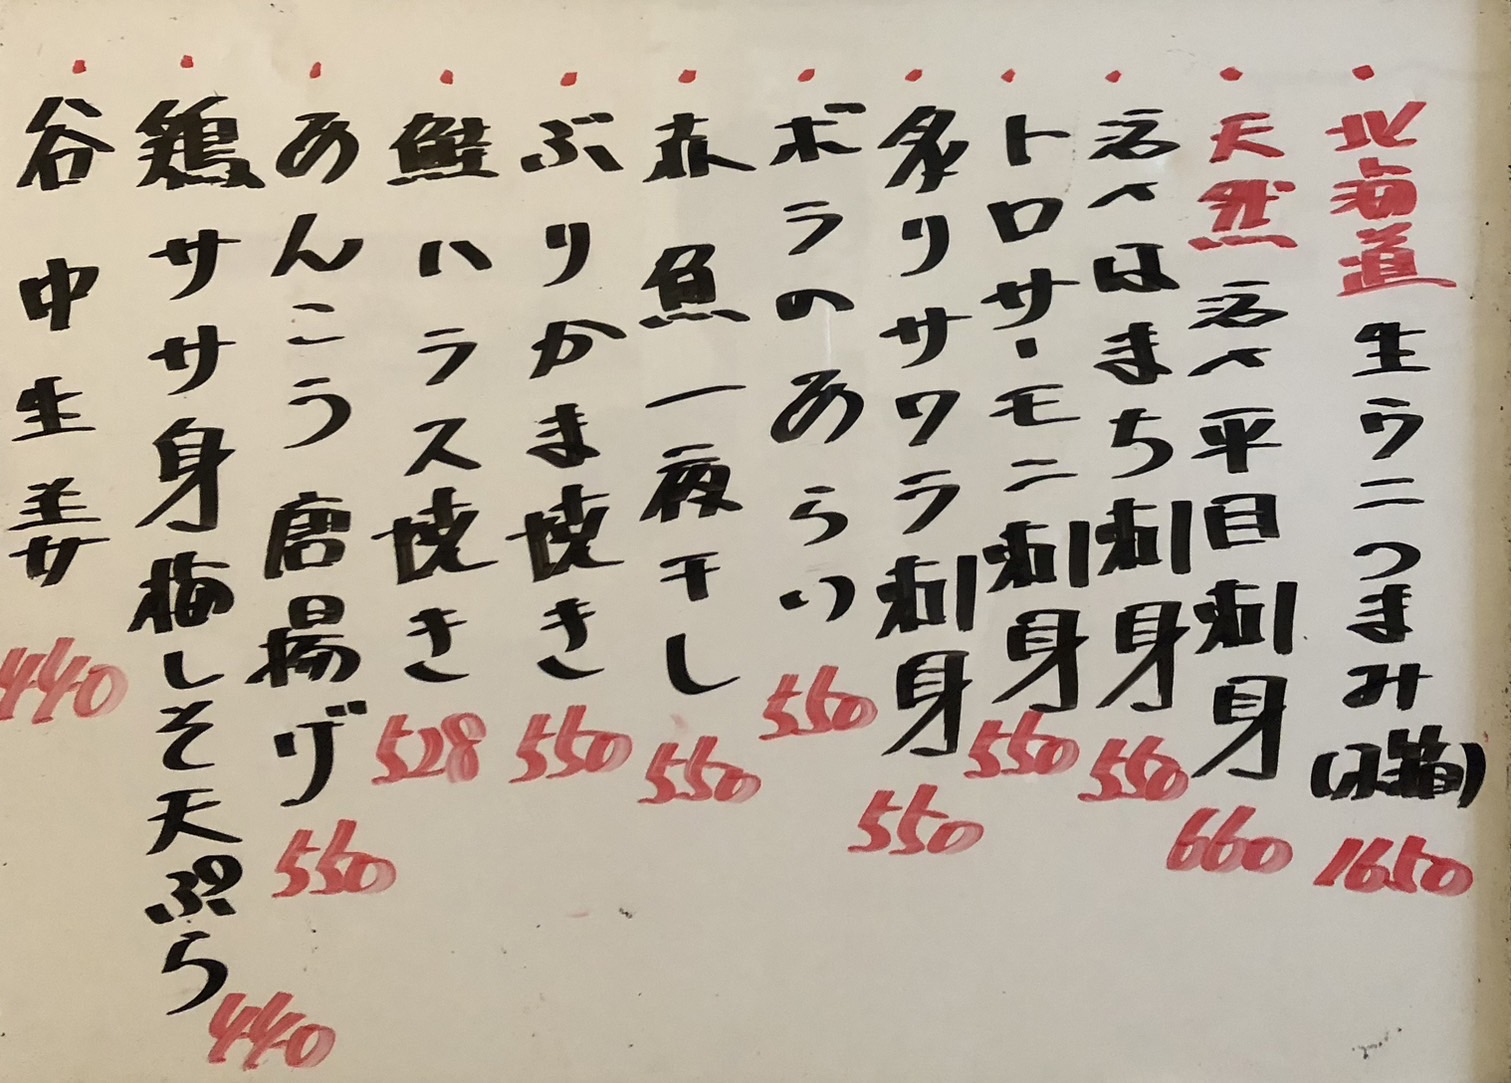 北海道生ウニつまみ 1650
天然活〆平目刺身 660
活〆はまち刺身 550
トロサーモン刺身 550
炙りサワラ刺身 550
ボラのあらい 550
赤魚一夜干し 550
ぶりかま焼き 550
鮭ハラス焼き 528
あんこう唐揚げ 550
鶏ササ身梅しそ天ぷら 440
谷中生姜 440